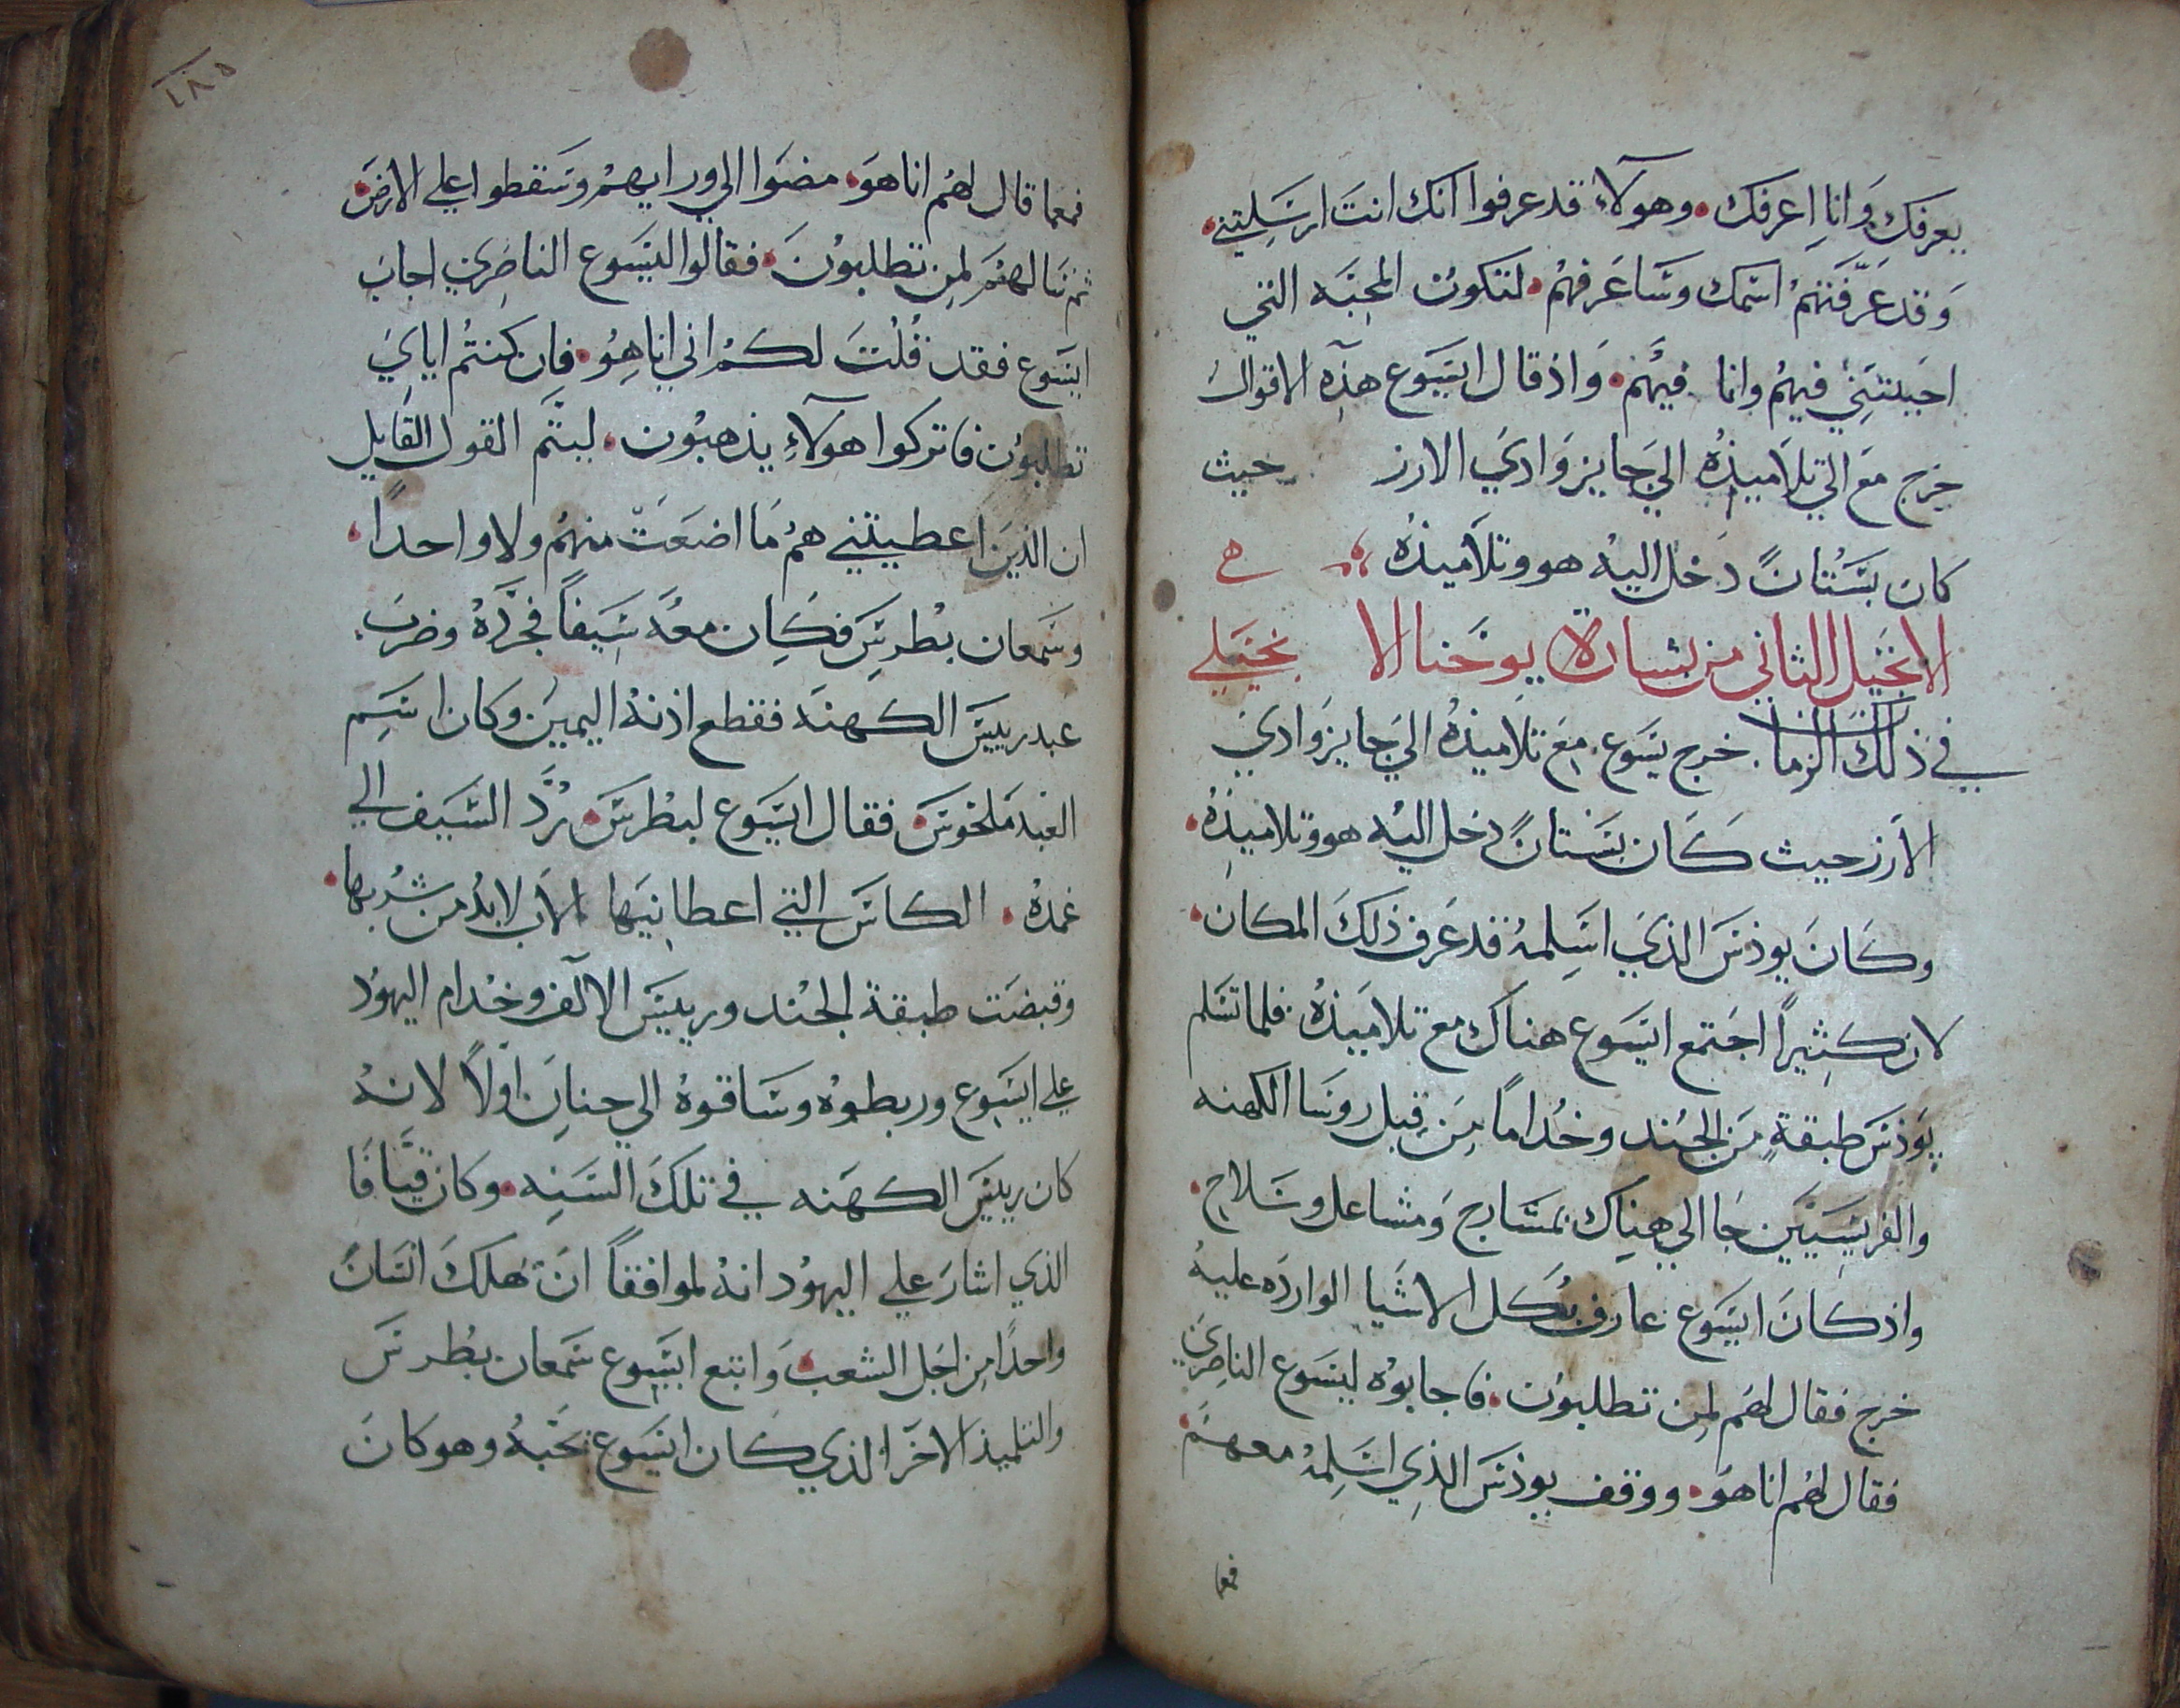 يعرفك وانا اعرفك وهولآء قد عرفوا انك انت ارسلتني
وقد عرفتهم اسمك وساعرفهم لتكون المحبه التي
احببتني فيهم وانا فيهم واذ قال ايسوع هذه الاقوال
خرج مع تلاميذه الي جايز وادي الارز حيث
كان بستان دخل اليه هو وتلاميذه
الانجيل الثاني من بشارة يوحنا الانجيلي
في ذلك الزمان خرج يسوع مع تلاميذه الي جايز وادي
الارز حيث كان بستان دخل اليه هو وتلاميذه
وكان يوذس الذي اسلمه قد عرف ذلك المكان
لان كثيراً اجتمع ايسوع هناك مع تلاميذه فلما تسلم
يوذس طبقة من الجند وخداماً من قبل روسا الكهنه
والفريسيين جا الي هناك بمسارج ومشاعل وسلاح
واذ كان ايسوع عارف بكل الاشيا الوارده عليه
خرج فقال لهم لمن تطلبون فاجابوه ليسوع الناصري
فقال لهم انا هو ووقف يوذس الذي اسلمه معهم
فمعما
١٨٥
فمعما قال لهم انا هو مضوا الي ورايهم وسقطوا علي الارض
ثم سالهم لمن تطلبون فقالوا اليسوع الناصري اجاب
ايسوع فقد قلت لكم اني انا هو فان كنتم اياي
تطلبون فاتركوا هولآء يذهبون ليتم القول القايل
ان الذين اعطيتني هم ما اضعت منهم ولا واحداً
وسمعان بطرس فكان معه سيفاً فجرّده وضرب
عبد رييس الكهنه فقطع اذنه اليمين وكان اسم
العبد ملخوس فقال ايسوع لبطرس ردّ السيف الي
غمده الكاس التي اعطانيها الاب لابد من شربها
وقبضت طبقة الجند ورييس الالف وخدام اليهود
علي ايسوع وربطوه وساقوه الي حنان اولاً لانه
كان رييس الكهنه في تلك السنه وكان قيافا
الذي اشار علي اليهود انه لموافقاً ان يهلك انسان
واحداً من اجل الشعب واتبع ايسوع سمعان بطرس
والتلميذ الاخر الذي كان ايسوع يحبه وهو كان